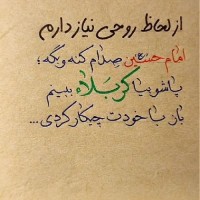 از لحاظ روحی نیاز دارم
امام حسین(ع) صِدام کنه و بگه؛
پاشو بیا کربلاء ببینم
باز با خودت چیکار کردی...